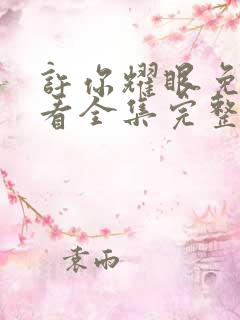 許你耀眼免
看全集完整
袁雨